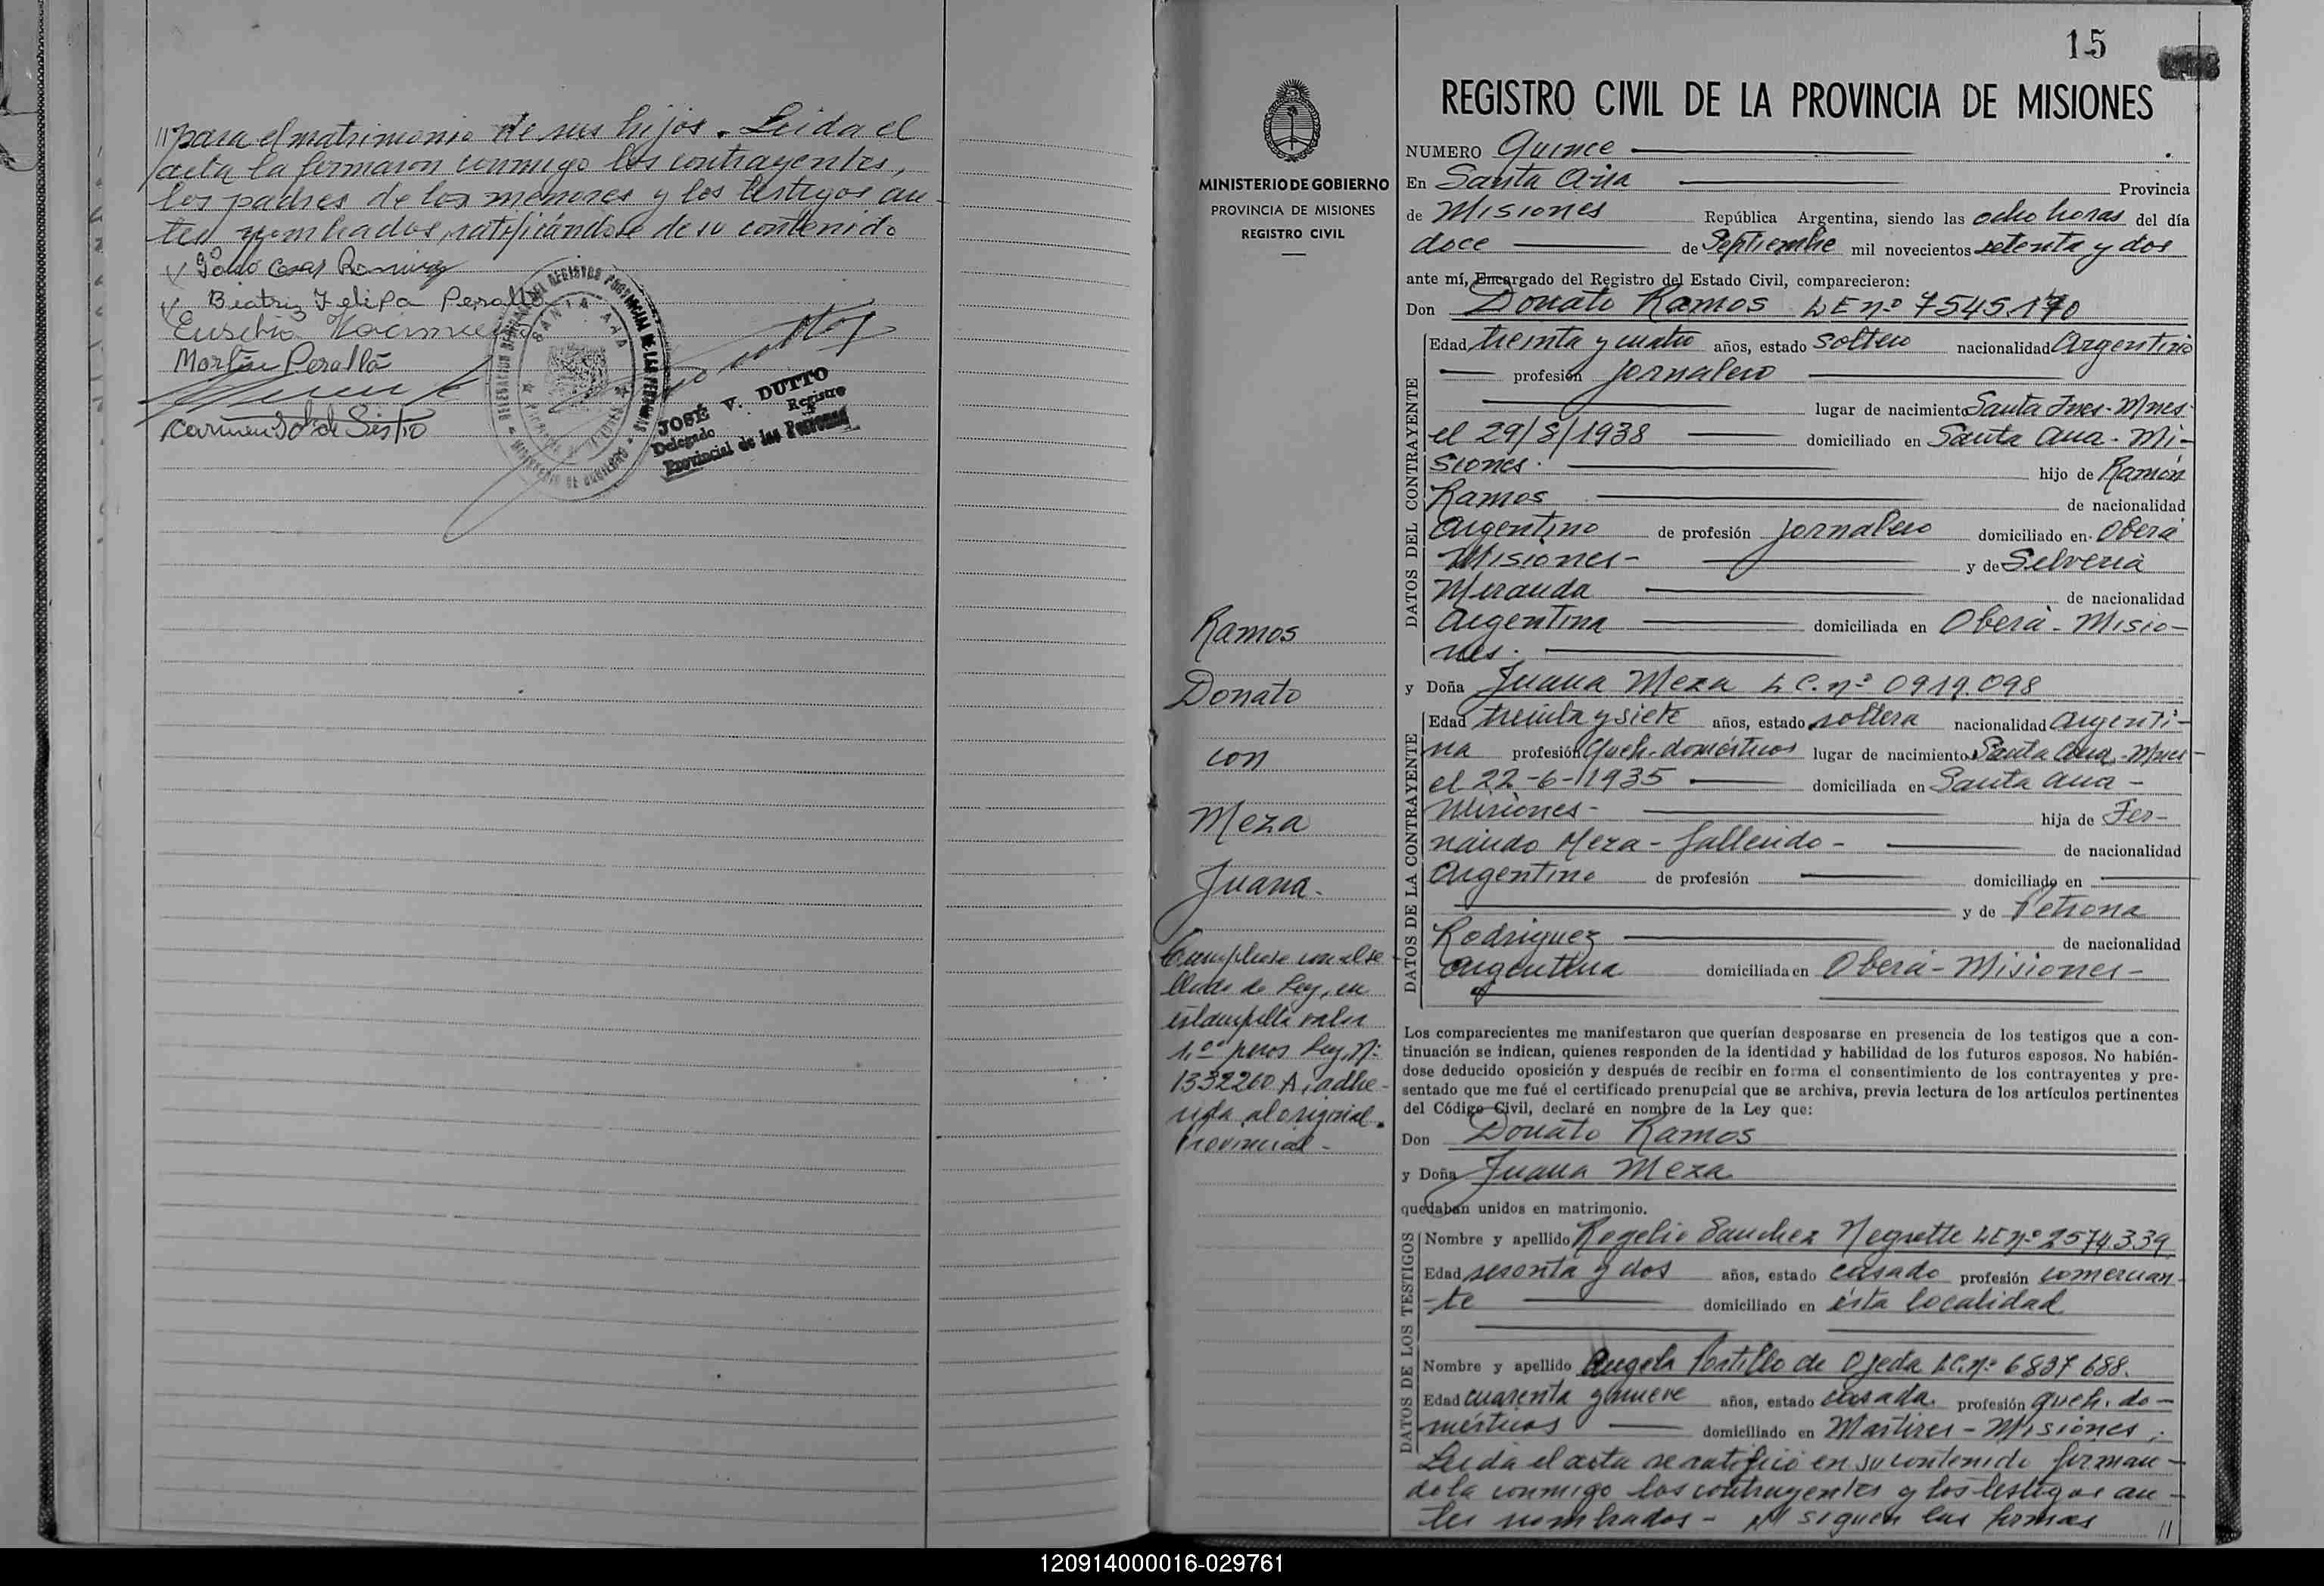 // para el matrimonio de sus hijos. Leida el
acta la firmaron conmigo los contrayentes,
los padres de los menores y los testigos an-
tes nombrados, ratificándose de su contenido
Beatriz Felipa Peralta
Eusebia
Martín Peralta
Carmen S. de Sistio
SANTA ANA
JOSÉ V. DUTTO
Delegado Registro
Provincial de las Personas
15
REGISTRO CIVIL DE LA PROVINCIA DE MISIONES
MINISTERIO DE GOBIERNO
PROVINCIA DE MISIONES
REGISTRO CIVIL
Ramos
Donato
con
Meza
Juana-
Cumplease con el se-
llado de Ley, en
estampilla valor
1,00 pesos Ley, Nº
1332260 A, adhe-
rida al original
Provincial-
NUMERO Quince
En Santa Ana Provincia
de Misiones República Argentina, siendo las ocho horas del día
doce de Septiembre mil novecientos setenta y dos
ante mí, Encargado del Registro del Estado Civil, comparecieron:
Don Donato Ramos LE nº 7545170
DATOS DEL CONTRAYENTE
Edad treinta y cuatro años, estado soltero nacionalidad Argentino
profesión jornalero
lugar de nacimiento Santa Ines-Mnes.
el 29/8/1938 domiciliado en Santa Ana-Mi-
siones. hijo de Ramón
Ramos de nacionalidad
Argentino de profesión jornalero domiciliado en Oberá
Misiones- y de Selveria
Miranda de nacionalidad
Argentina domiciliada en Oberá-Misio-
nes.
y Doña Juana Meza L C. nº 0919.098
DATOS DE LA CONTRAYENTE
Edad treinta y siete años, estado soltera nacionalidad Argenti-
na profesión queh. domésticos lugar de nacimiento Santa Ana-Mnes-
el 22-6-1935 domiciliada en Santa Ana-
Misiones- hija de Fer-
nando Meza-fallecido- de nacionalidad
Argentino de profesión domiciliado en
y de Petrona
Rodriguez de nacionalidad
Argentina domiciliada en Oberá-Misiones-
Los comparecientes me manifestaron que querían desposarse en presencia de los testigos que a con-
tinuación se indican, quienes responden de la identidad y habilidad de los futuros esposos. No habién-
dose deducido oposición y después de recibir en forma el consentimiento de los contrayentes y pre-
sentado que me fué el certificado prenupcial que se archiva, previa lectura de los artículos pertinentes
del Código Civil, declaré en nombre de la Ley que:
Don Donato Ramos
y Doña Juana Meza
quedaban unidos en matrimonio.
DATOS DE LOS TESTIGOS
Nombre y apellido Rogelio Sanchez Negrette LE nº 2574.339
Edad sesenta y dos años, estado casado profesión comercian-
-te domiciliado en ésta localidad
Nombre y apellido Angela Portillo de Ojeda LC. nº 6837688.
Edad cuarenta y nueve años, estado casada. profesión queh. do-
mésticos domiciliado en Martires-Misiones.
Leida el acta se ratificó en su contenido firman-
dola conmigo los contrayentes y los testigos an-
tes nombrados- siguen las firmas //
120914000016-029761